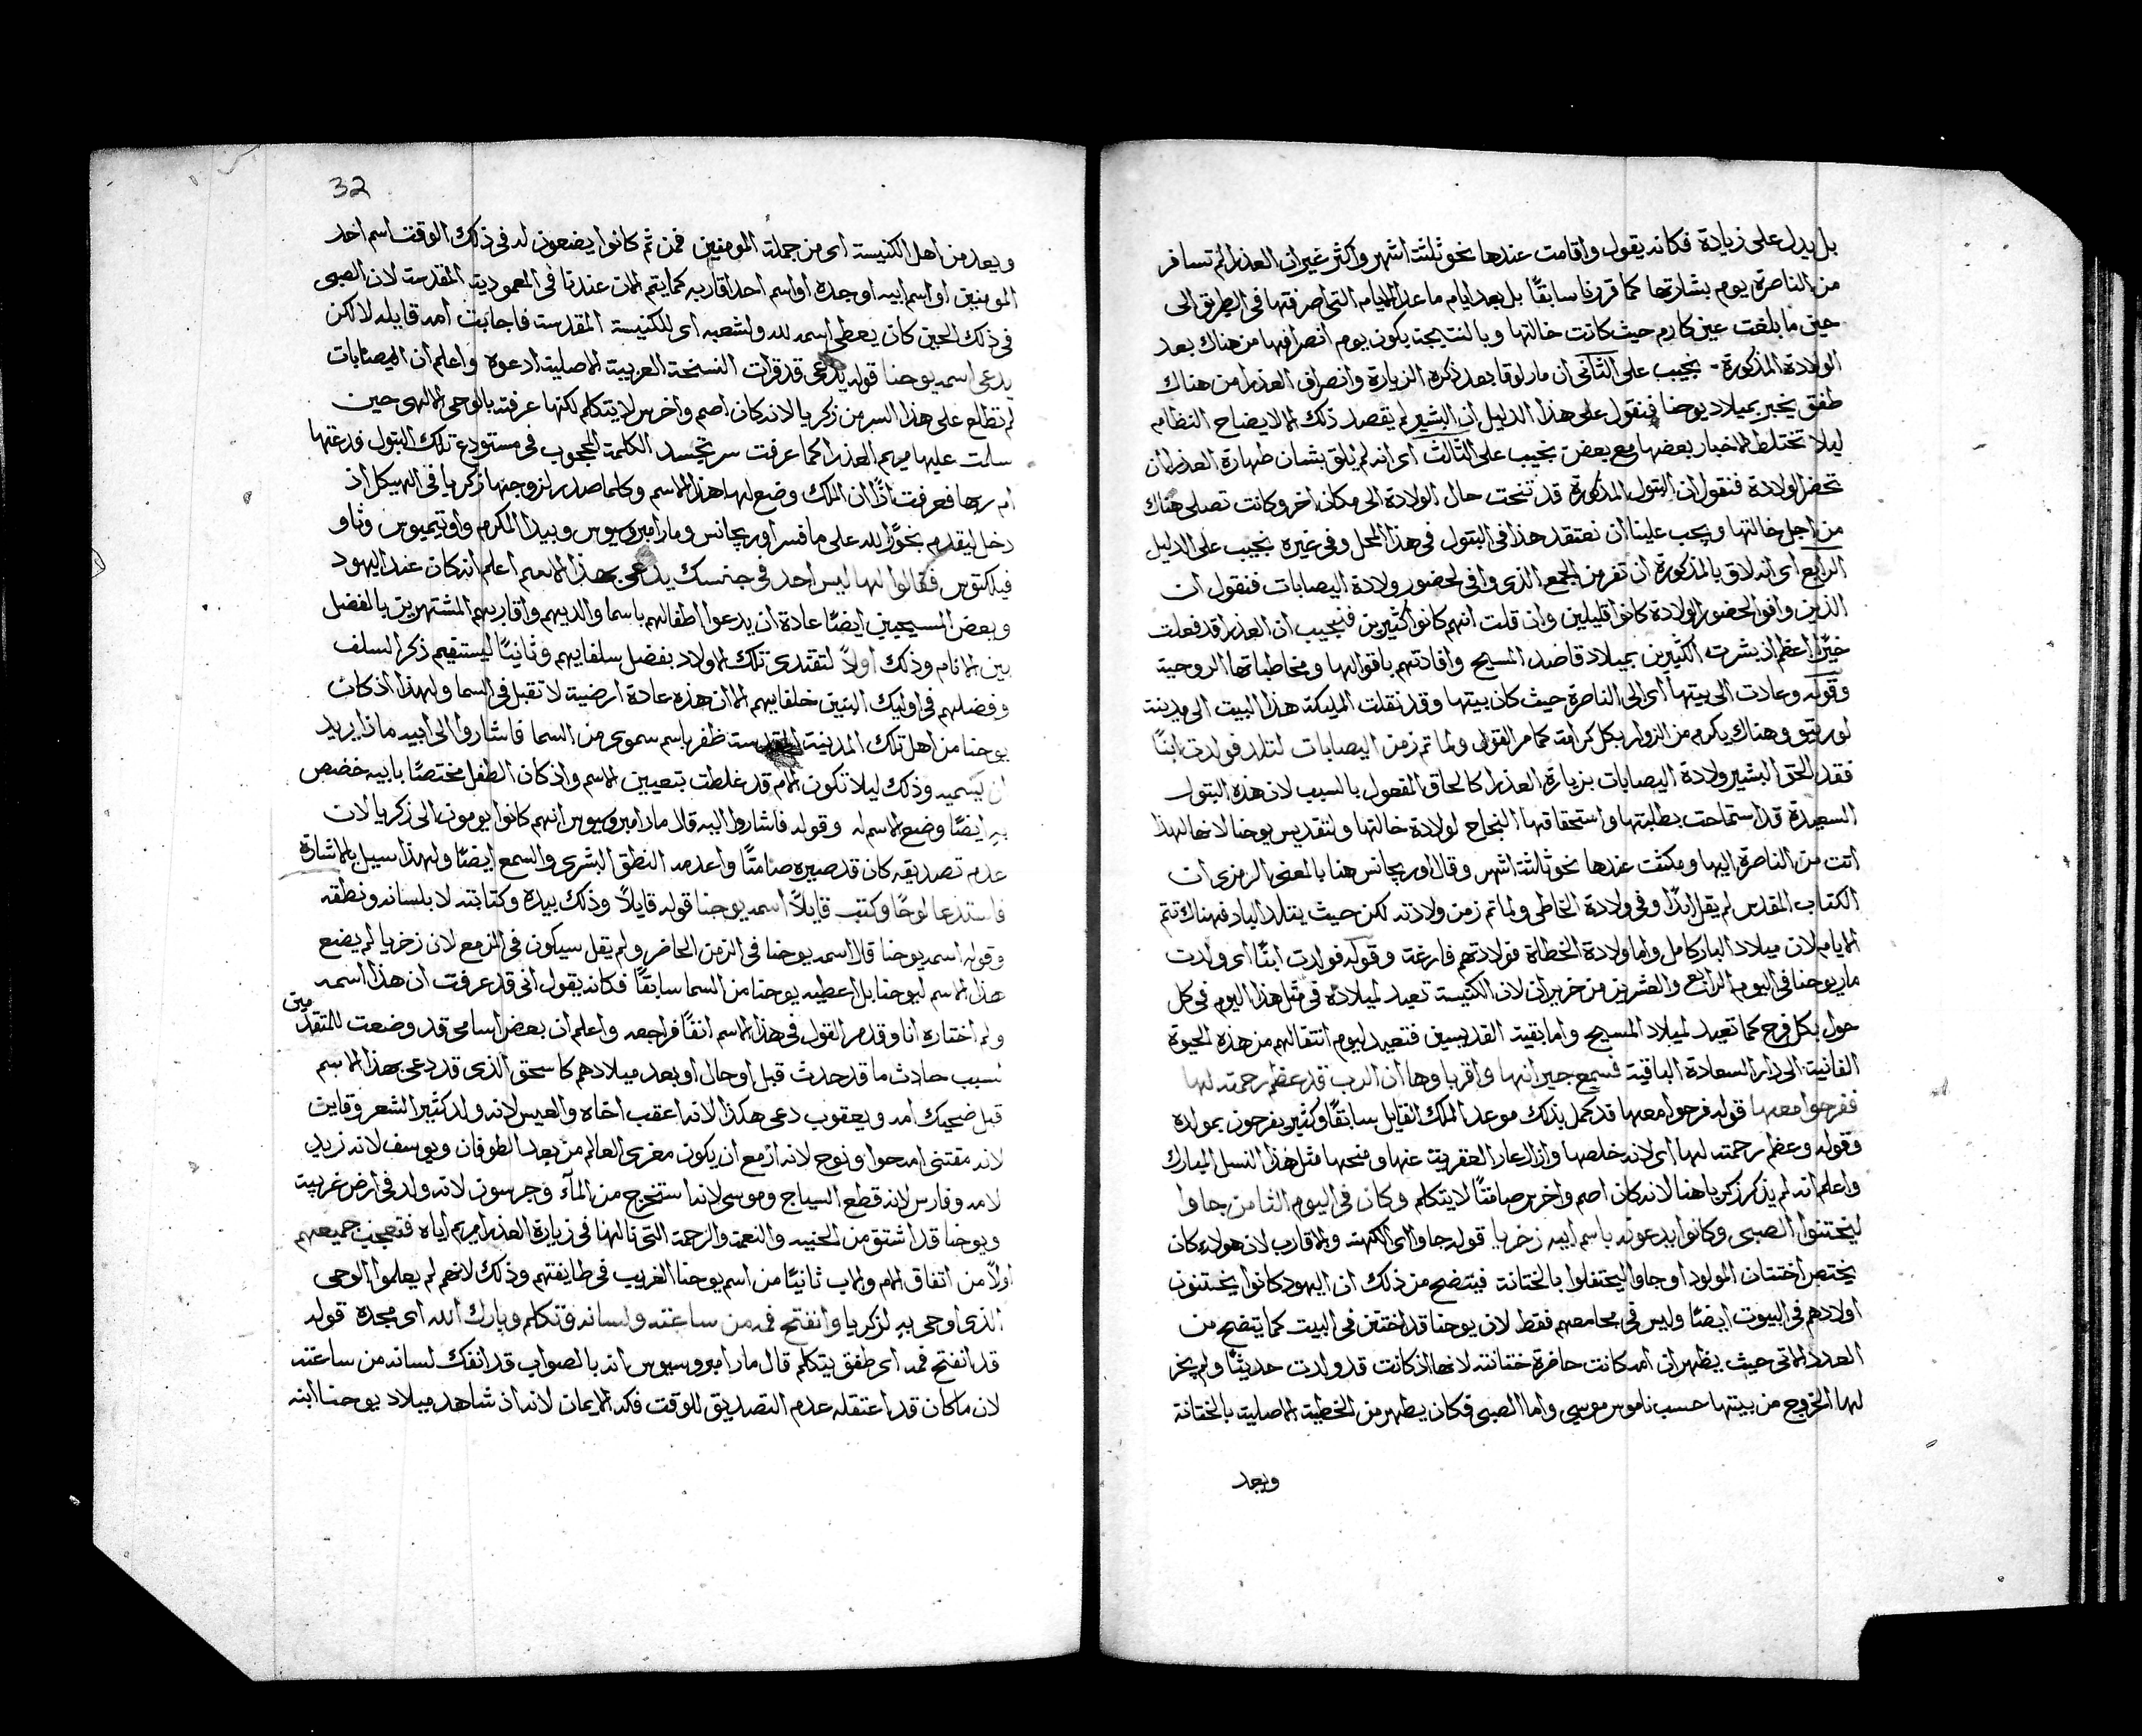 بل يدل على زيادة فكانه يقول واقامت عندها نحو ثلثة اشهر واكثر غير ان العذرا لم تسافر
من الناصرة يوم بشارتها كما قررنا سابقًا بل بعد ايام ما عدا الايام التي اصرفتها في الطريق الى
حين ما بلغت عين كارم حيث كانت خالتها وبالنتيجة يكون يوم انصرافها من هناك بعد
الولادة المذكورة نجيب على الثاني ان مار لوقا بعد ذكره الزيارة وانصراف العذرا من هناك
طفق يخبر بميلاد يوحنا فنقول على هذا الدليل ان البشير لم يقصد ذلك الا لايضاح النظام
ليلا تختلط الاخبار بعضها مع بعض نجيب على الثالث اى انه لم يلق بشان طهارة العذرا ان
تحضر الولادة فنقول ان البتول المذكورة قد تنحت حال الولادة الى مكان اخر وكانت تصلى هناك
من اجل خالتها ويجب علينا ان نعتقد هذا في البتول في هذا المحل وفي غيره نجيب على الدليل
الرابع اى انه لاق بالمذكورة ان تفر من الجمع الذى وافى لحضور ولادة اليصابات فنقول ان
الذين وافوا لحضور الولادة كانوا قليلين وان قلت انهم كانوا كثيرين فنجيب ان العذرا قد فعلت
خيرًا اعظم اذ بشرت الكثيرين بميلاد قاصد المسيح وافادتهم باقوالها ومخاطباتها الروحية
وقوله وعادت الى بيتها اى الى الناصرة حيث كان بيتها وقد نقلت المليكة هذا البيت الى مدينة
لوريتو وهناك يكرم من الزوار بكل كرامة كما مر القول ولما تم زمن اليصابات لتلد فولدت ابنًا
فقد الحق البشير ولادة اليصابات بزيارة العذرا كالحاق المفعول بالسبب لان هذه البتول
السعيدة قد استماحت بطلبتها واستحقاقها النجاح لولادة خالتها ولتقديس يوحنا لانها لهذا
اتت من الناصرة اليها ومكثت عندها نحو ثالثة اشهر وقال اوريجانس هنا بالمعنى الرمزى ان
الكتاب المقدس لم يقل ابدًا وفي ولادة الخاطى ولما تم زمن ولادته لكن حيث يتلد البار فهناك تتم
الايام لان ميلاد البار كامل واما ولادة الخطاة فولادتهم فارغة وقوله فولدت ابنًا اى ولدت
مار يوحنا في اليوم الرابع والعشرين من حزيران لان الكنيسة تعيد لميلاده في مثل هذا اليوم في كل
حول بكل فرح كما تعيد لميلاد المسيح واما بقية القديسين فتعيد ليوم انتقالهم من هذه الحيوة
الفانية الى دار السعادة الباقية فسمع جيرانها واقرباوها ان الرب قد عظم رحمته لها
ففرحوا معها قوله فرحوا معها قد كمل بذلك موعد الملك القايل سابقًا وكثيرين يفرحون بمولده
وقوله وعظم رحمته لها اى لانه خلصها وازال عار العقربة عنها ومنحها مثل هذا النسل المبارك
واعلم انه لم يذكر زكريا هنا لانه كان اصم واخرس صامتًا لا يتكلم وكان في اليوم الثامن جاوا
ليختنوا الصبى وكانوا يدعونه باسم ابيه زخريا قوله جاوا اى الكهنة والاقارب لان هولاء كان
يختص اختتان المولود او جاوا ليحتفلوا بالختانة فيتضح من ذلك ان اليهود كانوا يختنون
اولادهم في البيوت ايضًا وليس في مجامعهم فقط لان يوحنا قد اختتن في البيت كما يتضح من
العدد الاتى حيث يظهر ان امه كانت حاضرة ختانته لانها اذ كانت قد ولدت حديثًا ولم يجز
لها الخروج من بيتها حسب ناموس موسى واما الصبى فكان يطهر من الخطية الاصلية بالختانة
ويعد
32
ويعد من اهل الكنيسة اى من جملة المومنين فمن ثم كانوا يضعون له في ذلك الوقت اسم احد
المومنين او اسم ابيه او جده او اسم احد اقاربه كما يتم الان عندنا في المعمودية المقدسة لان الصبى
في ذلك الحين كان يعطى اسمه لله ولشعبه اى للكنيسة المقدسة فاجابت امه قايله لا لكن
يدعى اسمه يوحنا قوله يدعى قد قرات النسخة العربية الاصلية ادعوه واعلم ان اليصابات
لم تطلع على هذا السر من زكريا لانه كان اصم واخرس لا يتكلم لكنها عرفته بالوحى الالهى حين
سلمت عليها مريم العذرا كما عرفت سر تجسد الكلمة المحجوب في مستودع تلك البتول فدعتها
ام ربها فعرفت اذًا ان الملك وضع لها هذا الاسم وكلما صدر لزوجها زكريا في الهيكل اذ
دخل ليقدم بخورًا لله على ما فسر اوريجانس ومار امبروسيوس وبيدا المكرم واوتيميوس وثاو
فيلكتوس فقالوا لها ليس احد في جنسك يدعى بهذا الاسم اعلم انه كان عند اليهود
وبعض المسيحيين ايضًا عادة ان يدعوا اطفالهم باسما والديهم واقاربهم المشتهرين بالفضل
بين الانام وذلك اولًا لتقتدى تلك الاولاد بفضل سلفايهم وثانيًا ليستقيم ذكر السلف
وفضلهم في اوليك البنين خلفايهم الا ان هذه عادة ارضية لا تقبل في السما ولهذا اذ كان
يوحنا من اهل تلك المدينة المقدسة ظفر باسم سموى من السما فاشاروا الى ابيه ماذا يريد
ان يسميه وذلك ليلا تكون الام قد غلطت بتعيين الاسم واذ كان الطفل مختصًا بابيه خصص
به ايضًا وضع الاسم له وقوله فاشاروا اليه قال مار امبروسيوس انهم كانوا يومون الى زكريا لان
عدم تصديقه كان قد صيره صامتًا واعدمه النطق البشرى والسمع ايضًا ولهذا سيل بالاشارة
فاستدعا لوحًا وكتب قايلًا اسمه يوحنا قوله قايلًا وذلك بيده وكتابته لا بلسانه ونطقه
وقوله اسمه يوحنا قال اسمه يوحنا في الزمن الحاضر ولم يقل سيكون في المزمع لان زخريا لم يضع
هذا الاسم ليوحنا بل اعطيه يوحنا من السما سابقًا فكانه يقول انى قد عرفت ان هذا اسمه
ولم اختاره انا وقد مر القول في هذا الاسم انفًا فراجعه واعلم ان بعض اسامى قد وضعت للمتقدمين
لسبب حادث ما قد حدث قبل او حال او بعد ميلادهم كاسحق الذى قد دعى بهذا الاسم
قبل ضحيك امه ويعقوب دعى هكذا لانه اعقب اخاه والعيس لانه ولد كثير الشعر وقاين
لانه مقتنى امه حوا ونوح لانه ازمع ان يكون معزى العالم من بعد الطوفان ويوسف لانه زيد
لامه وفارس لانه قطع السياج وموسى لانه استخرج من الماء وجرسون لانه ولد في ارض غريبة
ويوحنا قد اشتق من المحنيه والنعمة والرحمة التى نالها في زيارة العذرا مريم اياه فتعجب جميعهم
اولًا من اتفاق الام والاب ثانيًا من اسم يوحنا الغريب في طايفتهم وذلك لانهم لم يعلموا الوحى
الذى اوحى به لزكريا وانفتح فمه من ساعته ولسانه وتكلم وبارك الله اى مجده قوله
قد انفتح فمه اى طفق يتكلم قال مار امبروسيوس انه بالصواب قد انفك لسانه من ساعته
لان ما كان قد اعتقله عدم التصديق للوقت فكه الايمان لانه اذ شاهد ميلاد يوحنا ابنه